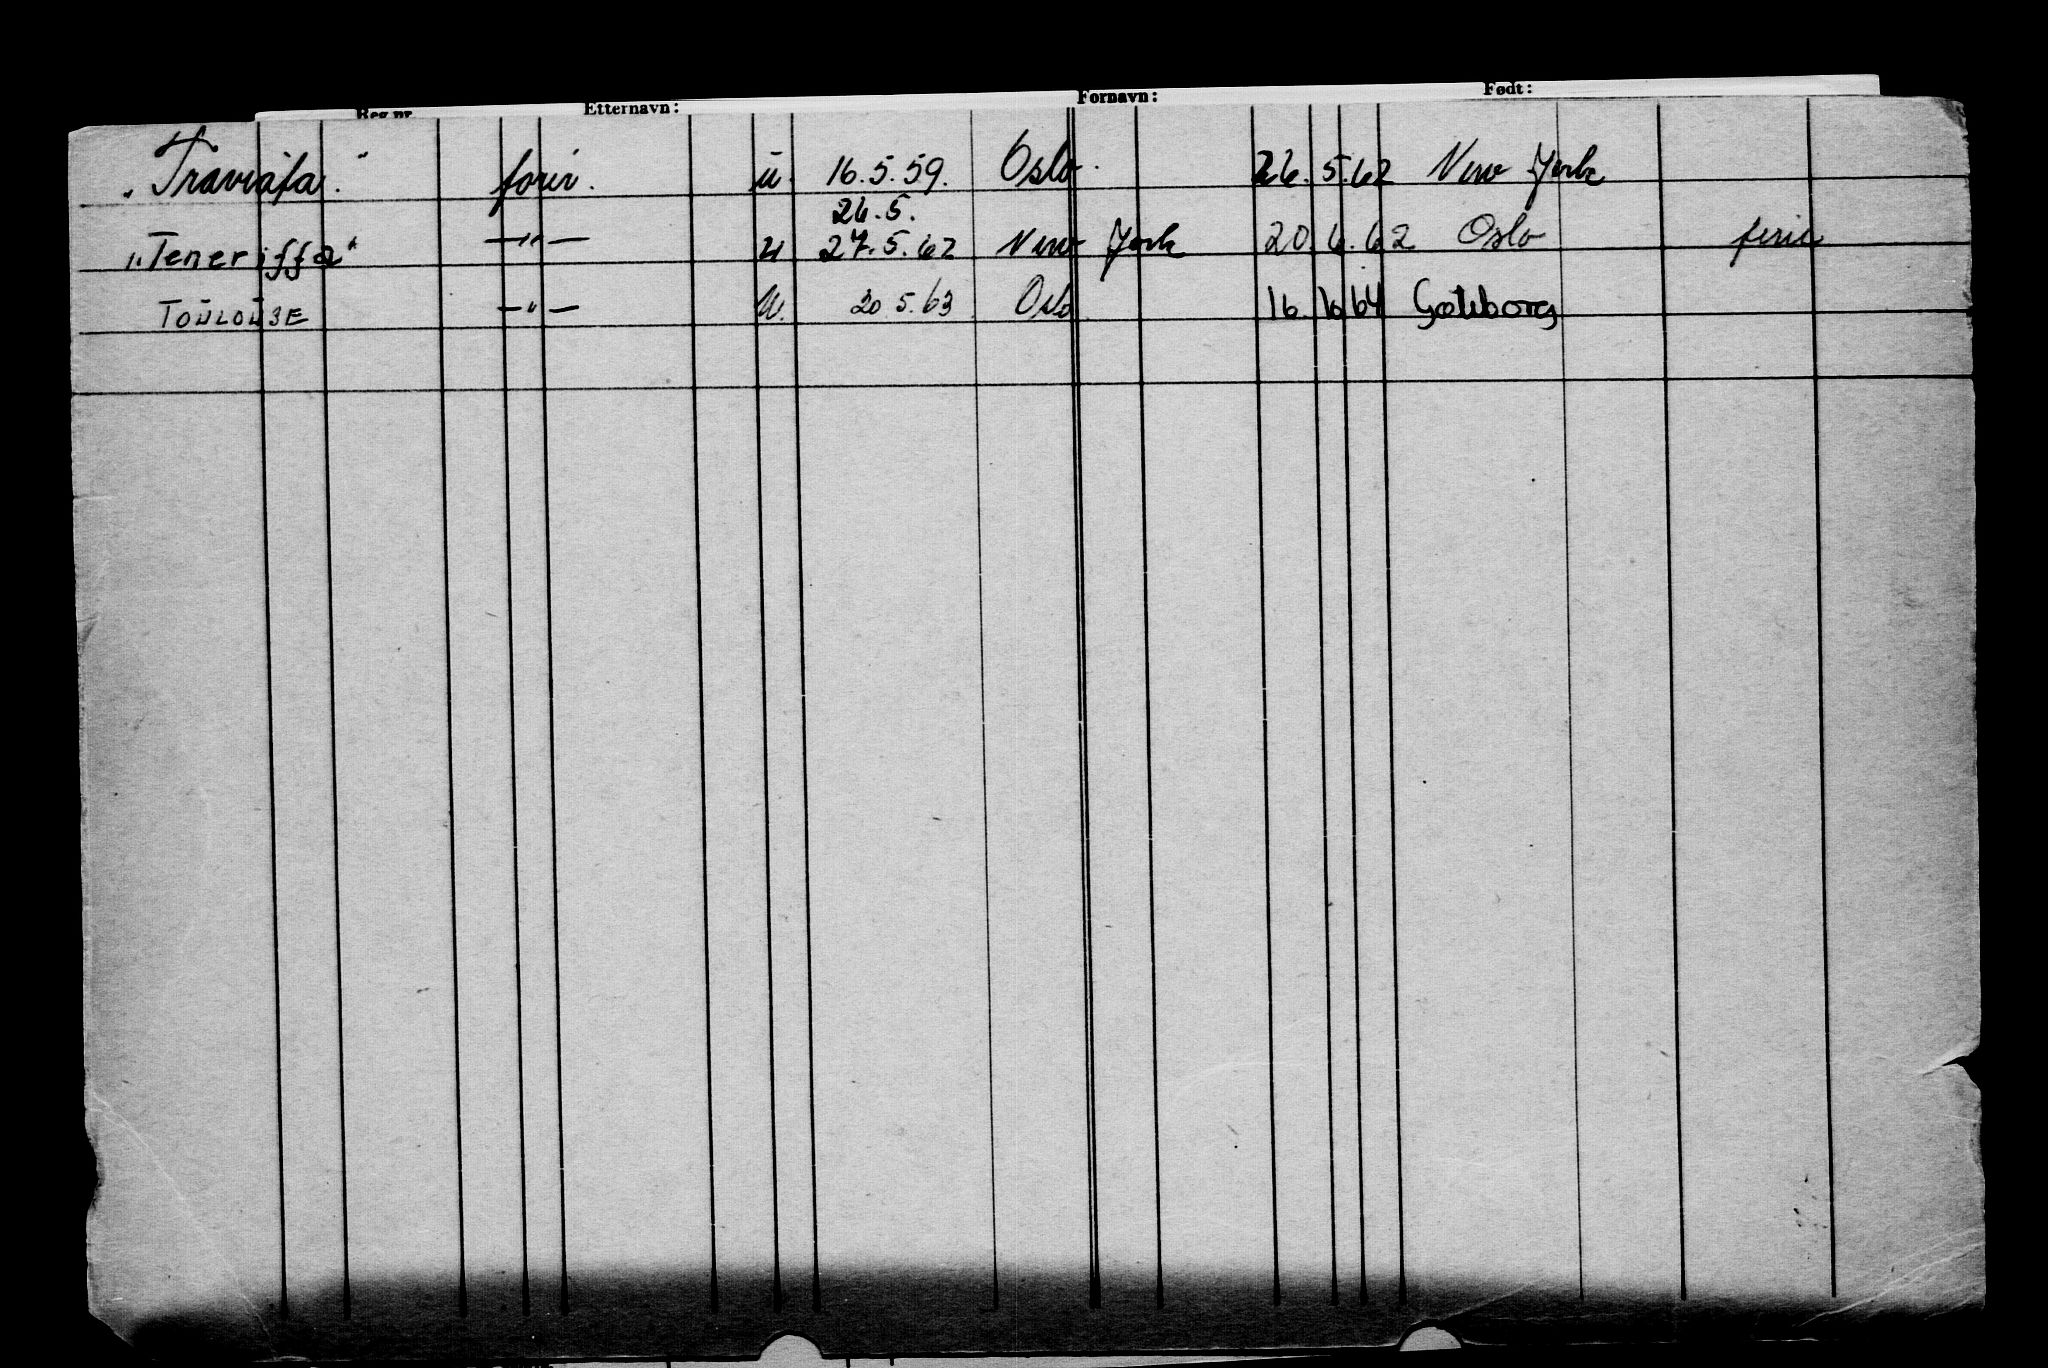 Reg.nr. Etternavn: Fornavn: Født:
"Traviata." u. 16.5.59. Oslo. 26.5.62 New York
26.5.
"Teneriffa" —"— u 27.5.62 New York 20.6.62 Oslo ferie
TOULOUSE —"— u. 20.5.63 Oslo 16. 64 Gøteborg